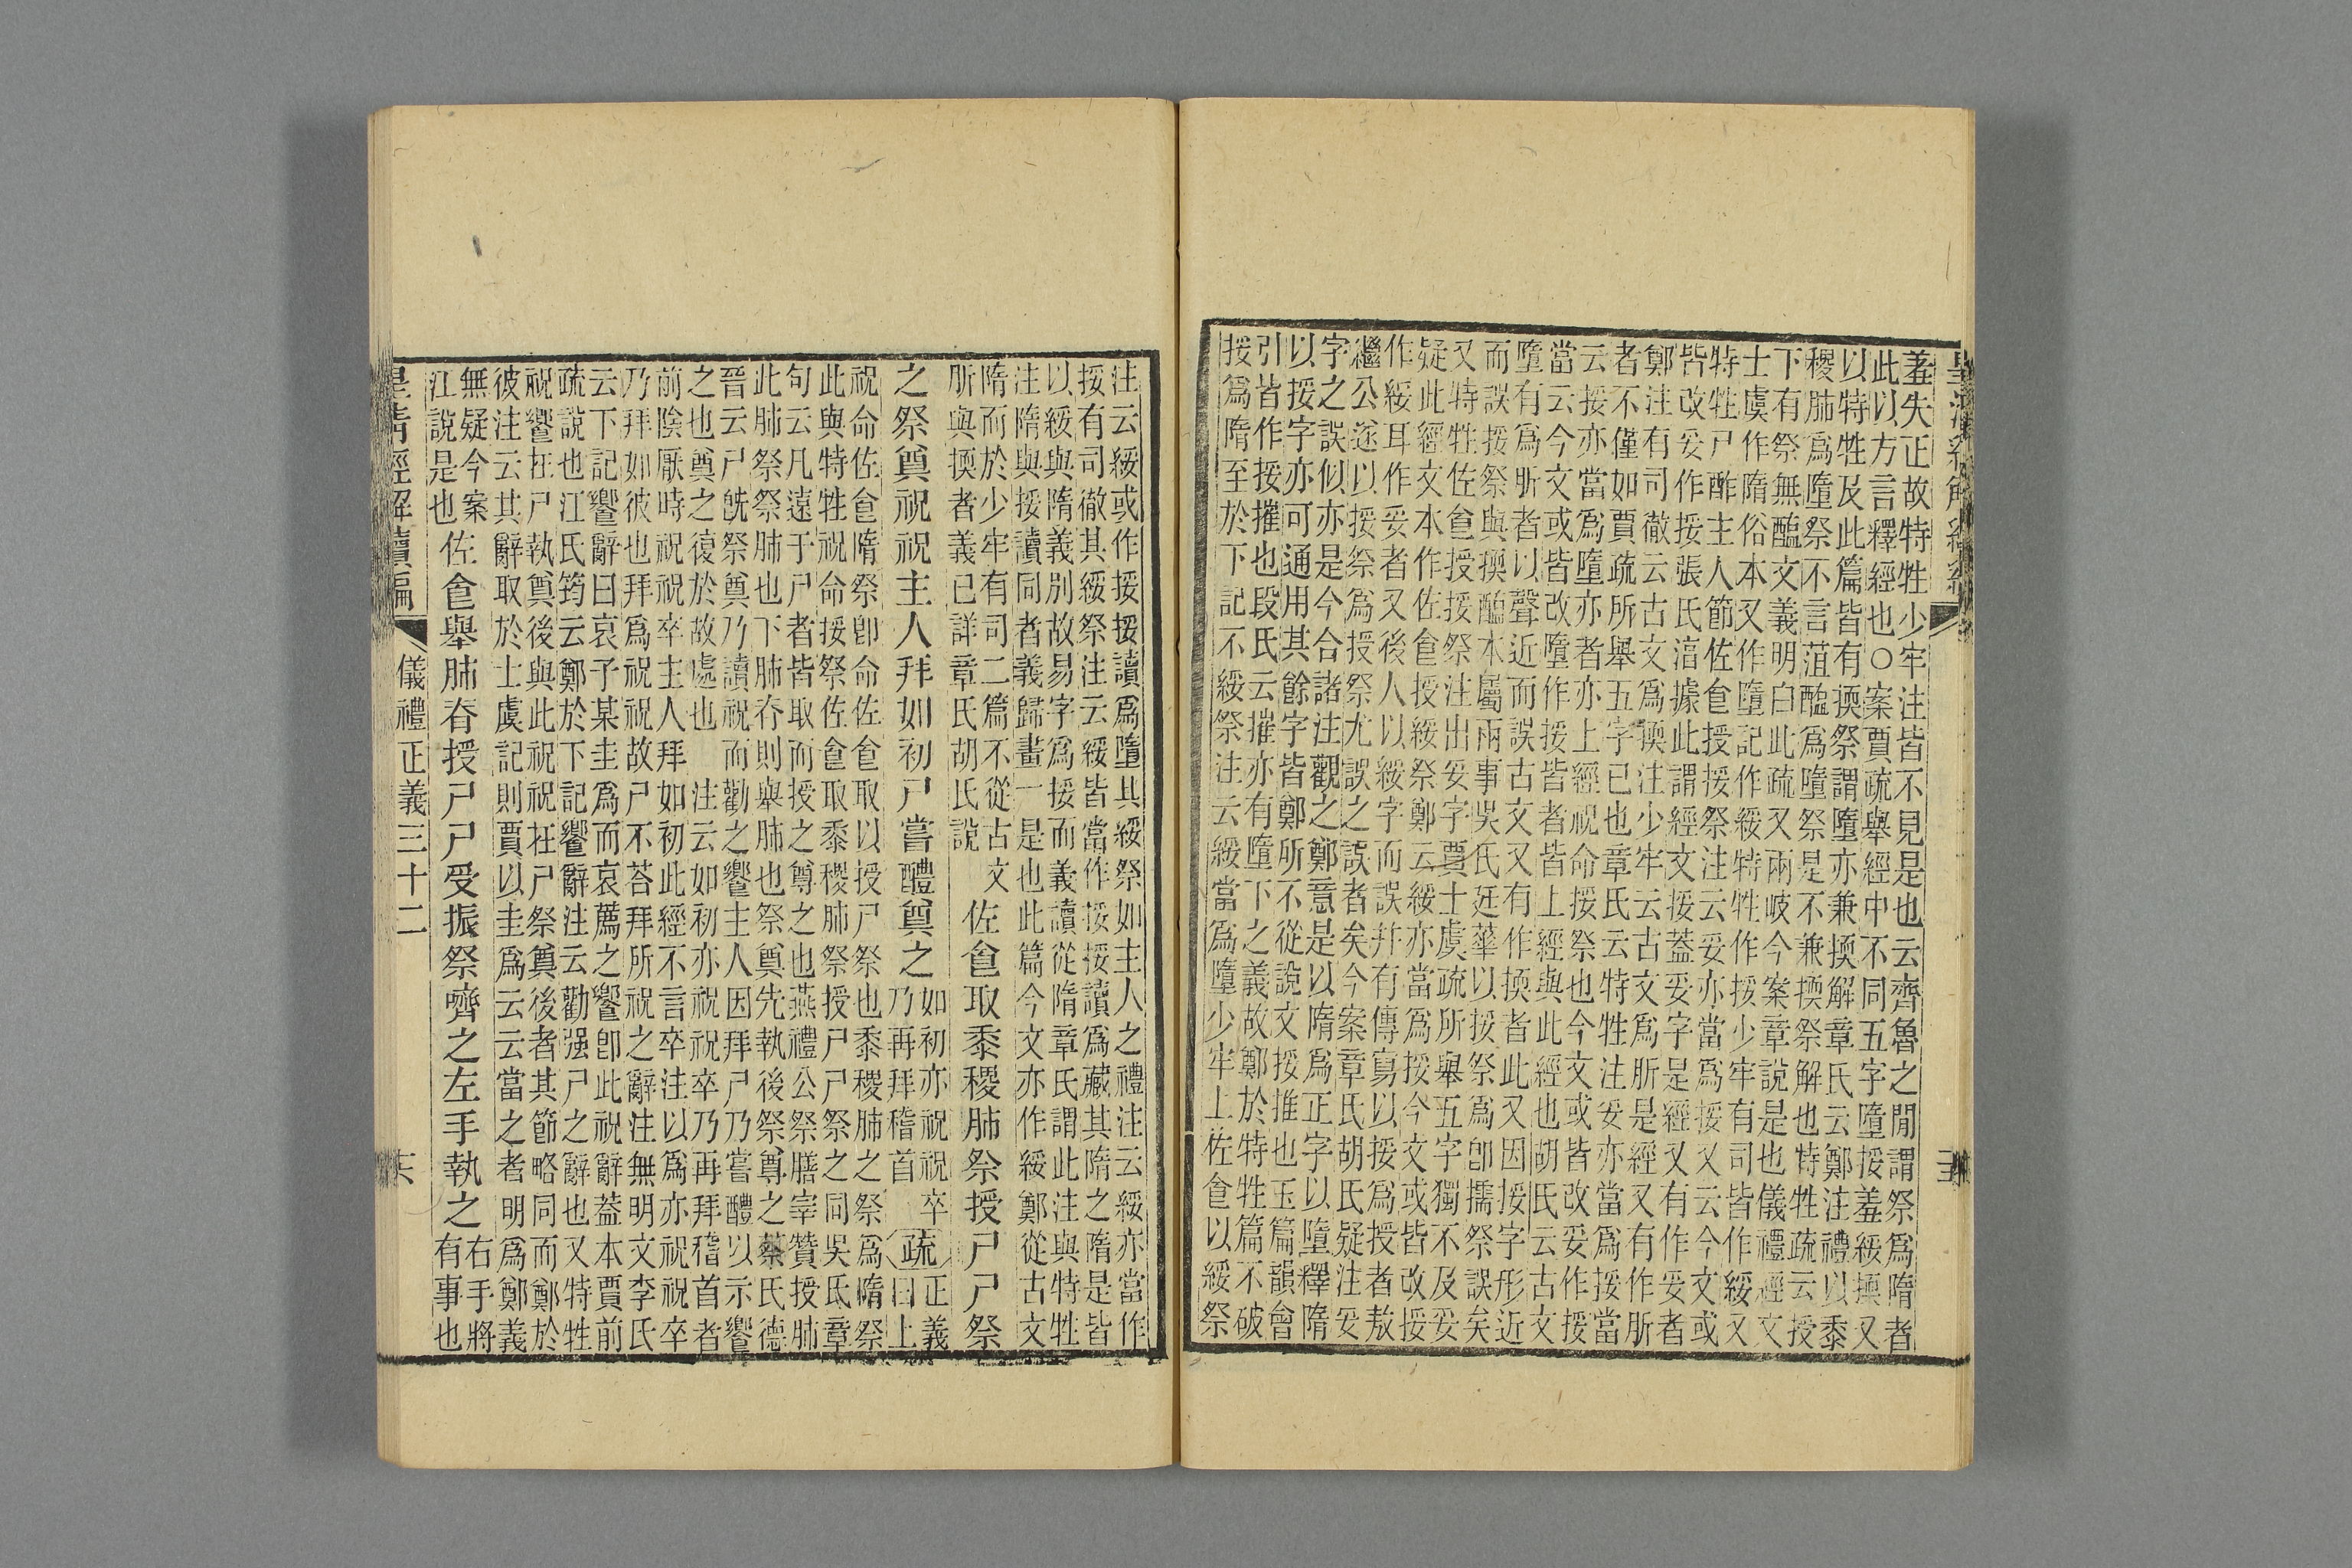 羞失正故特牲少牢注皆不見是也云齊魯之閒謂祭爲隋者
此以方言釋經也○案賈疏舉經中不同五字墮挼羞綏擩又
以特牲及此篇皆有擩祭謂墮亦兼擩解章氏云鄭注禮以黍
稷肺爲墮祭不言菹醢爲墮祭是不兼擩祭解也特牲疏云授
下有祭無醢文義明白此疏又兩岐今案章說是也儀禮經文
士虞作隋俗本又作墮記作綏特牲作挼少牢有司皆作綏又
特牲尸酢主人節佐食授挼祭注云妥亦當爲挼又云今文或
皆改妥作挼張氏淳據此謂經文挼蓋妥字是經又有作妥者
鄭注有司徹云古文爲擩注少牢云古文爲肵是經又有作肵
者不僅如賈疏所舉五字已也章氏云特牲注妥亦當爲挼當
云挼亦當爲墮亦者亦上經祝命挼祭也今文或皆改妥作挼
當云今文或皆改墮作挼皆者皆上經與此經也胡氏云古文
墮有爲肵者以聲近而誤古文又有作擩者此又因挼字形近
而誤挼祭與擩醢本屬兩事吳氏廷華以挼祭爲卽擩祭誤矣
又特牲佐食授挼祭注出妥字賈士虞疏所舉五字獨不及妥
疑此經文本作佐食授綏祭鄭云綏亦當爲挼今文或皆改挼
作綏耳作妥者又後人以綏字而誤幷有傳寫以挼爲授者敖
繼公遂以挼祭爲授祭尤誤之誤者矣今案章氏胡氏疑注妥
字之誤似亦是今合諸注觀之鄭意是以隋爲正字以墮釋隋
以挼字亦可通用其餘字皆鄭所不從說文挼推也玉篇韻會
引皆作挼摧也段氏云摧亦有墮下之義故鄭於特牲篇不破
挼爲隋至於下記不綏祭注云綏當爲墮少牢上佐食以綏祭
注云綏或作挼挼讀爲墮其綏祭如主人之禮注云綏亦當作
挼有司徹其綏祭注云綏皆當作挼挼讀爲藏其隋之隋是皆
以綏與隋義別故易字爲挼而義讀從隋章氏謂此注與特牲
注隋與挼讀同者義歸畫一是也此篇今文亦作綏鄭從古文
隋而於少牢有司二篇不從古文
所與擩者義已詳章氏胡氏說
佐食取黍稷肺祭授尸尸祭
之祭奠祝祝主人拜如初尸嘗醴奠之
如初亦祝祝卒
乃再拜稽首
疏
正義
曰上
祝命佐食隋祭卽命佐食取以授尸祭也黍稷肺之祭爲隋祭
此與特牲祝命挼祭佐食取黍稷肺祭授尸尸祭之同吳氏章
句云凡遠于尸者皆取而授之尊之也燕禮公祭膳宰贊授肺
此肺祭祭肺也下肺脊則舉肺也祭奠先執後祭尊之蔡氏德
晉云尸旣祭奠乃讀祝而勸之饗主人因拜尸乃嘗醴以示饗
之也奠之復於故處也 注云如初亦祝祝卒乃再拜稽首者
前陰厭時祝祝卒主人拜如初此經不言卒注以爲亦祝祝卒
乃拜如彼也拜爲祝祝故尸不荅拜所祝之辭注無明文李氏
云下記饗辭曰哀子某圭爲而哀薦之饗卽此祝辭蓋本賈前
疏說也江氏筠云鄭於下記饗辭注云勸强尸之辭也又特牲
祝饗在尸執奠後與此祝祝在尸祭奠後者其節略同而鄭於
彼注云其辭取於士虞記則賈以圭爲云云當之者明爲鄭義
無疑今案
江說是也
佐食舉肺脊授尸尸受振祭嚌之左手執之
右手將
有事也
皇清經解續編 儀禮正義三十二